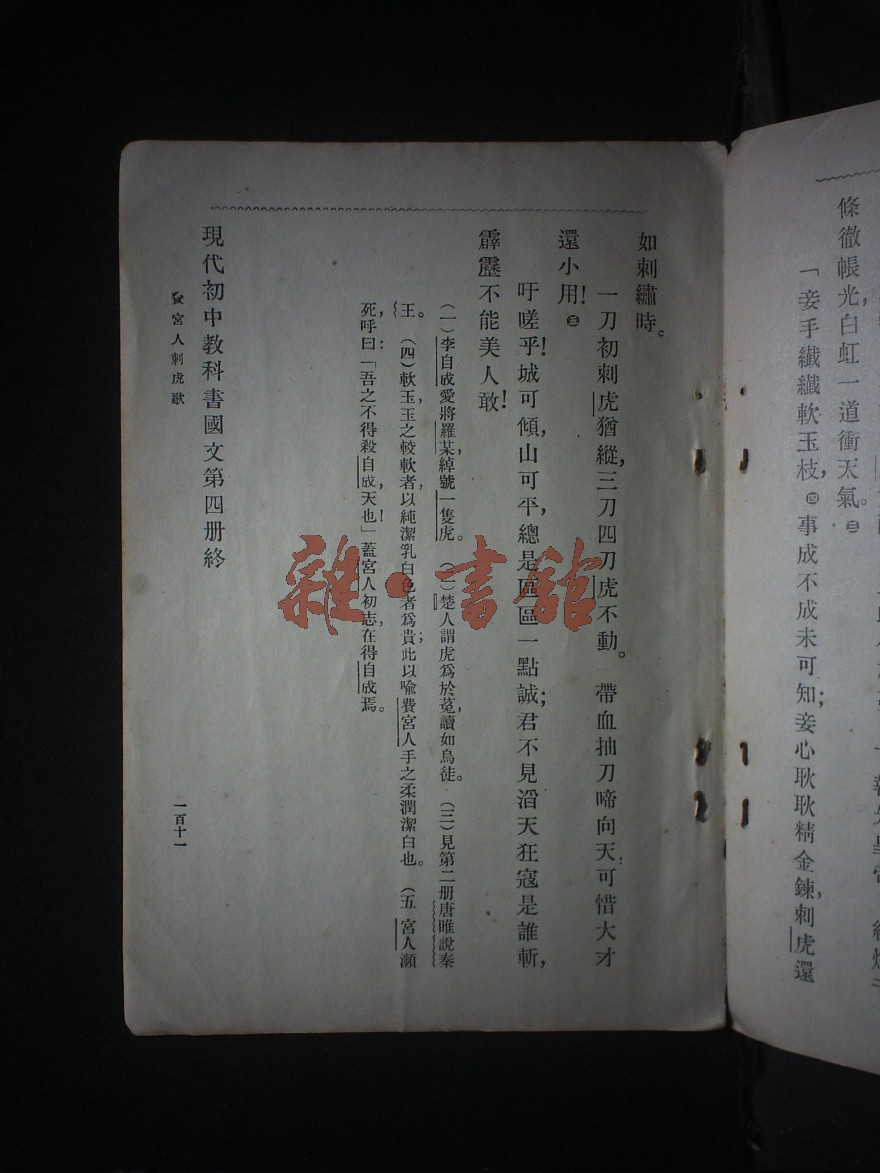 條徹帳光,白虹一道衝天氣。㊂
「妾手纖纖軟玉枝,㊃事成不成未可知;妾心耿耿精金鍊,刺虎還
如刺繡時。
一刀初刺虎猶縱,三刀四刀虎不動。帶血抽刀啼向天,可惜大才
還小用!㊄
吁嗟乎!城可傾,山可平,總是區區一點誠;君不見滔天狂寇是誰斬,
霹靂不能美人敢!
(一)李自成愛將羅某,綽號一隻虎。(二)楚人謂虎爲於菟,讀如烏徒。(三)見第二册唐睢說秦
王。(四)軟玉,玉之較軟者,以純潔乳白色者爲貴;此以喩費宮人手之柔潤潔白也。(五)宮人瀕
死,呼曰:「吾之不得殺自成,天也!」蓋宮人初志,在得自成焉。
現代初中教科書國文第四册終
宮人刺虎歌
一百十一
雜·書館